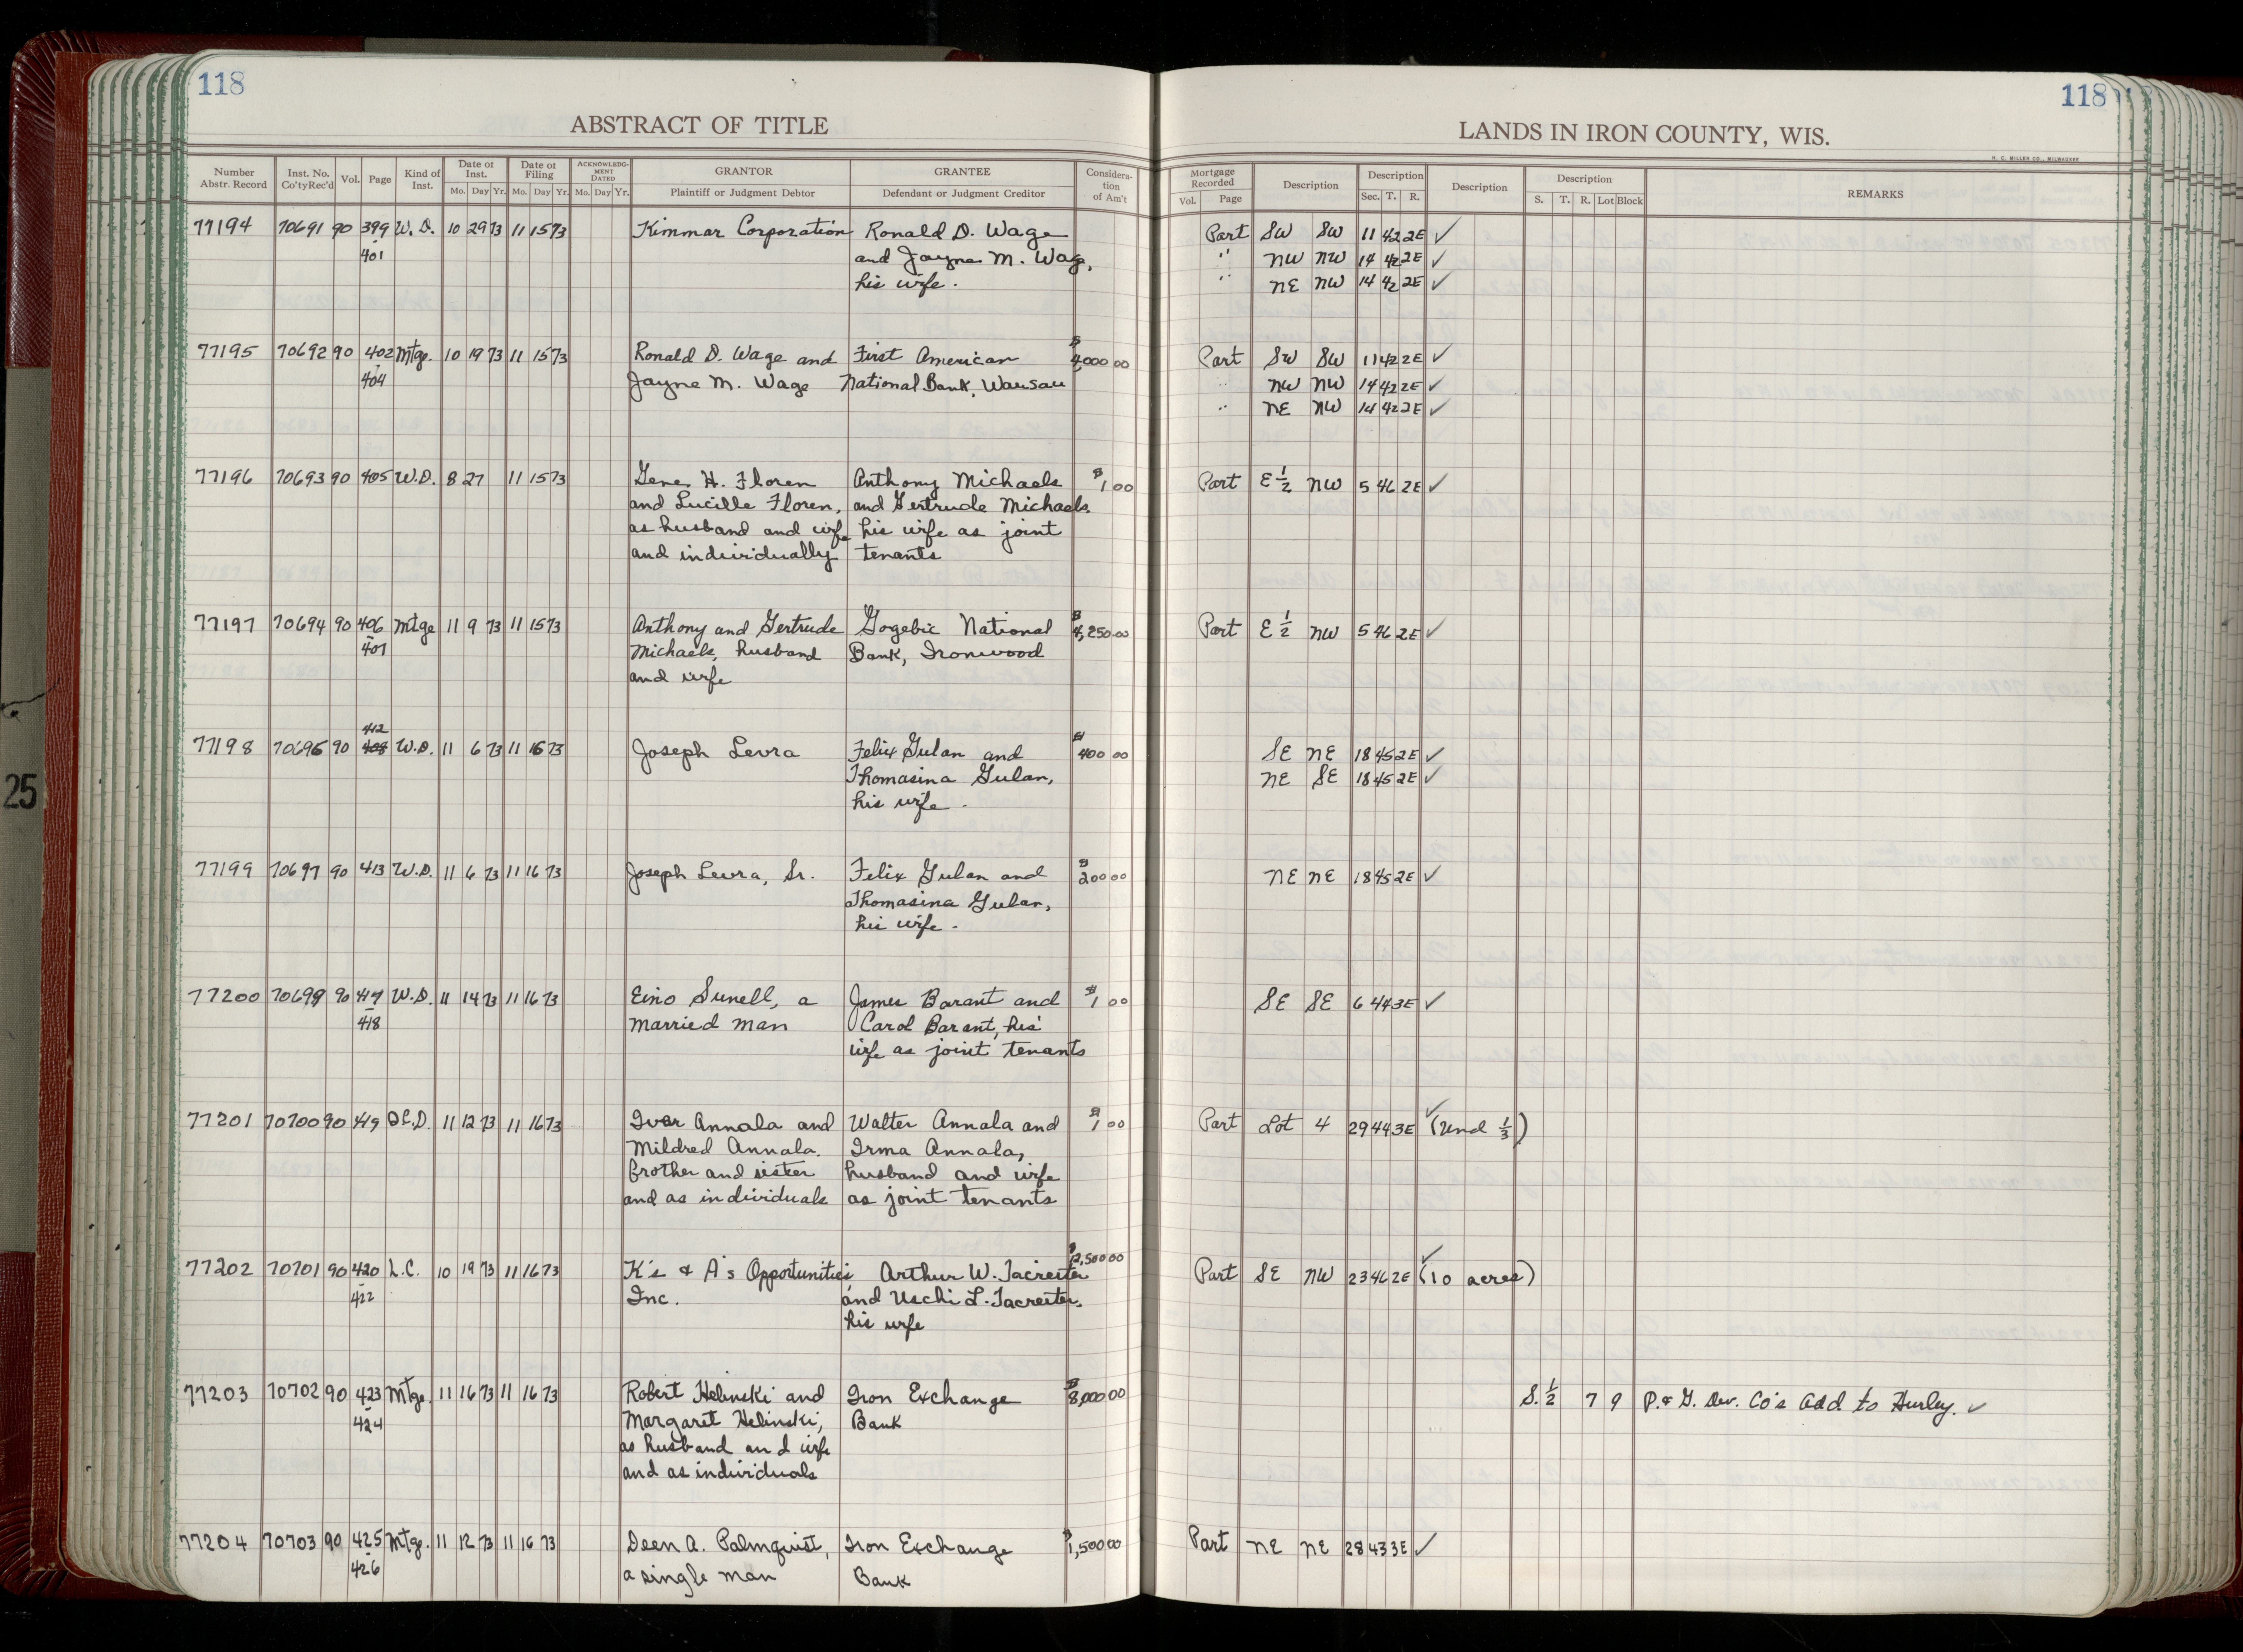 118
118
ABSTRACT OF TITLE
LANDS IN IRON COUNTY, WIS.
H. C. MILLER CO., MILWAUKEE
Number Abstr. Record | Inst. No. Co'ty Rec'd | Vol. | Page | Kind of Inst. | Date of Inst. Mo. Day Yr. | Date of Filing Mo. Day Yr. | ACKNOWLEDGMENT DATED Mo. Day Yr. | GRANTOR Plaintiff or Judgment Debtor | GRANTEE Defendant or Judgment Creditor | Consideration of Am't | Mortgage Recorded Vol. Page | Description | Description Sec. T. R. | Description | Description S. T. R. Lot Block | REMARKS
77194 70691 90 399 W.D. 10 29 73 11 15 73 Kimmar Corporation Ronald D. Wage Part SW SW 11 42 2E ✓
- 401 and Jayne M. Wage, " NW NW 14 42 2E ✓
his wife. " NE NW 14 42 2E ✓
77195 70692 90 402 Mtge. 10 19 73 11 15 73 Ronald D. Wage and First American $4000 00 Part SW SW 11 42 2E ✓
- 404 Jayne M. Wage National Bank, Wausau " NW NW 14 42 2E ✓
" NE NW 14 42 2E ✓
77196 70693 90 405 W.D. 8 27 11 15 73 Gene H. Floren Anthony Michaels $1 00 Part E 1/2 NW 5 46 2E ✓
and Lucille Floren, and Gertrude Michaels,
as husband and wife his wife as joint
and individually tenants
77197 70694 90 406 Mtge 11 9 73 11 15 73 Anthony and Gertrude Gogebic National $4,250 00 Part E 1/2 NW 5 46 2E ✓
- 407 Michaels, husband Bank, Ironwood
and wife
412
77198 70696 90 408 W.D. 11 6 73 11 16 73 Joseph Levra Felix Gulan and $400 00 SE NE 18 45 2E ✓
Thomasina Gulan, NE SE 18 45 2E ✓
his wife.
77199 70697 90 413 W.D. 11 6 73 11 16 73 Joseph Levra, Sr. Felix Gulan and $200 00 NE NE 18 45 2E ✓
Thomasina Gulan,
his wife.
77200 70699 90 417 W.D. 11 14 73 11 16 73 Eino Sunell, a James Barant and $1 00 SE SE 6 44 3E ✓
- 418 married man Carol Barant, his
wife as joint tenants
77201 70700 90 419 Q.C.D. 11 12 73 11 16 73 Ivar Annala and Walter Annala and $1 00 Part Lot 4 29 44 3E ✓ (Und 1/3)
Mildred Annala. Irma Annala,
brother and sister husband and wife
and as individuals as joint tenants
77202 70701 90 420 L.C. 10 19 73 11 16 73 K's & A's Opportunities Arthur W. $2,500 00 Part SE NW 23 46 2E ✓ (10 acres)
- 422 Inc. and Uschi L.
his wife
77203 70702 90 423 Mtge. 11 16 73 11 16 73 Robert Helinski and Iron Exchange $8,000 00 S. 1/2 7 9 P. & G. Dev. Co's Add to Hurley. ✓
- 424 Margaret Helinski, Bank
as husband and wife
and as individuals
77204 70703 90 425 Mtge. 11 12 73 11 16 73 Deen A. Palmquist, Iron Exchange $1,500 00 Part NE NE 28 43 3E ✓
- 426 a single man Bank
25